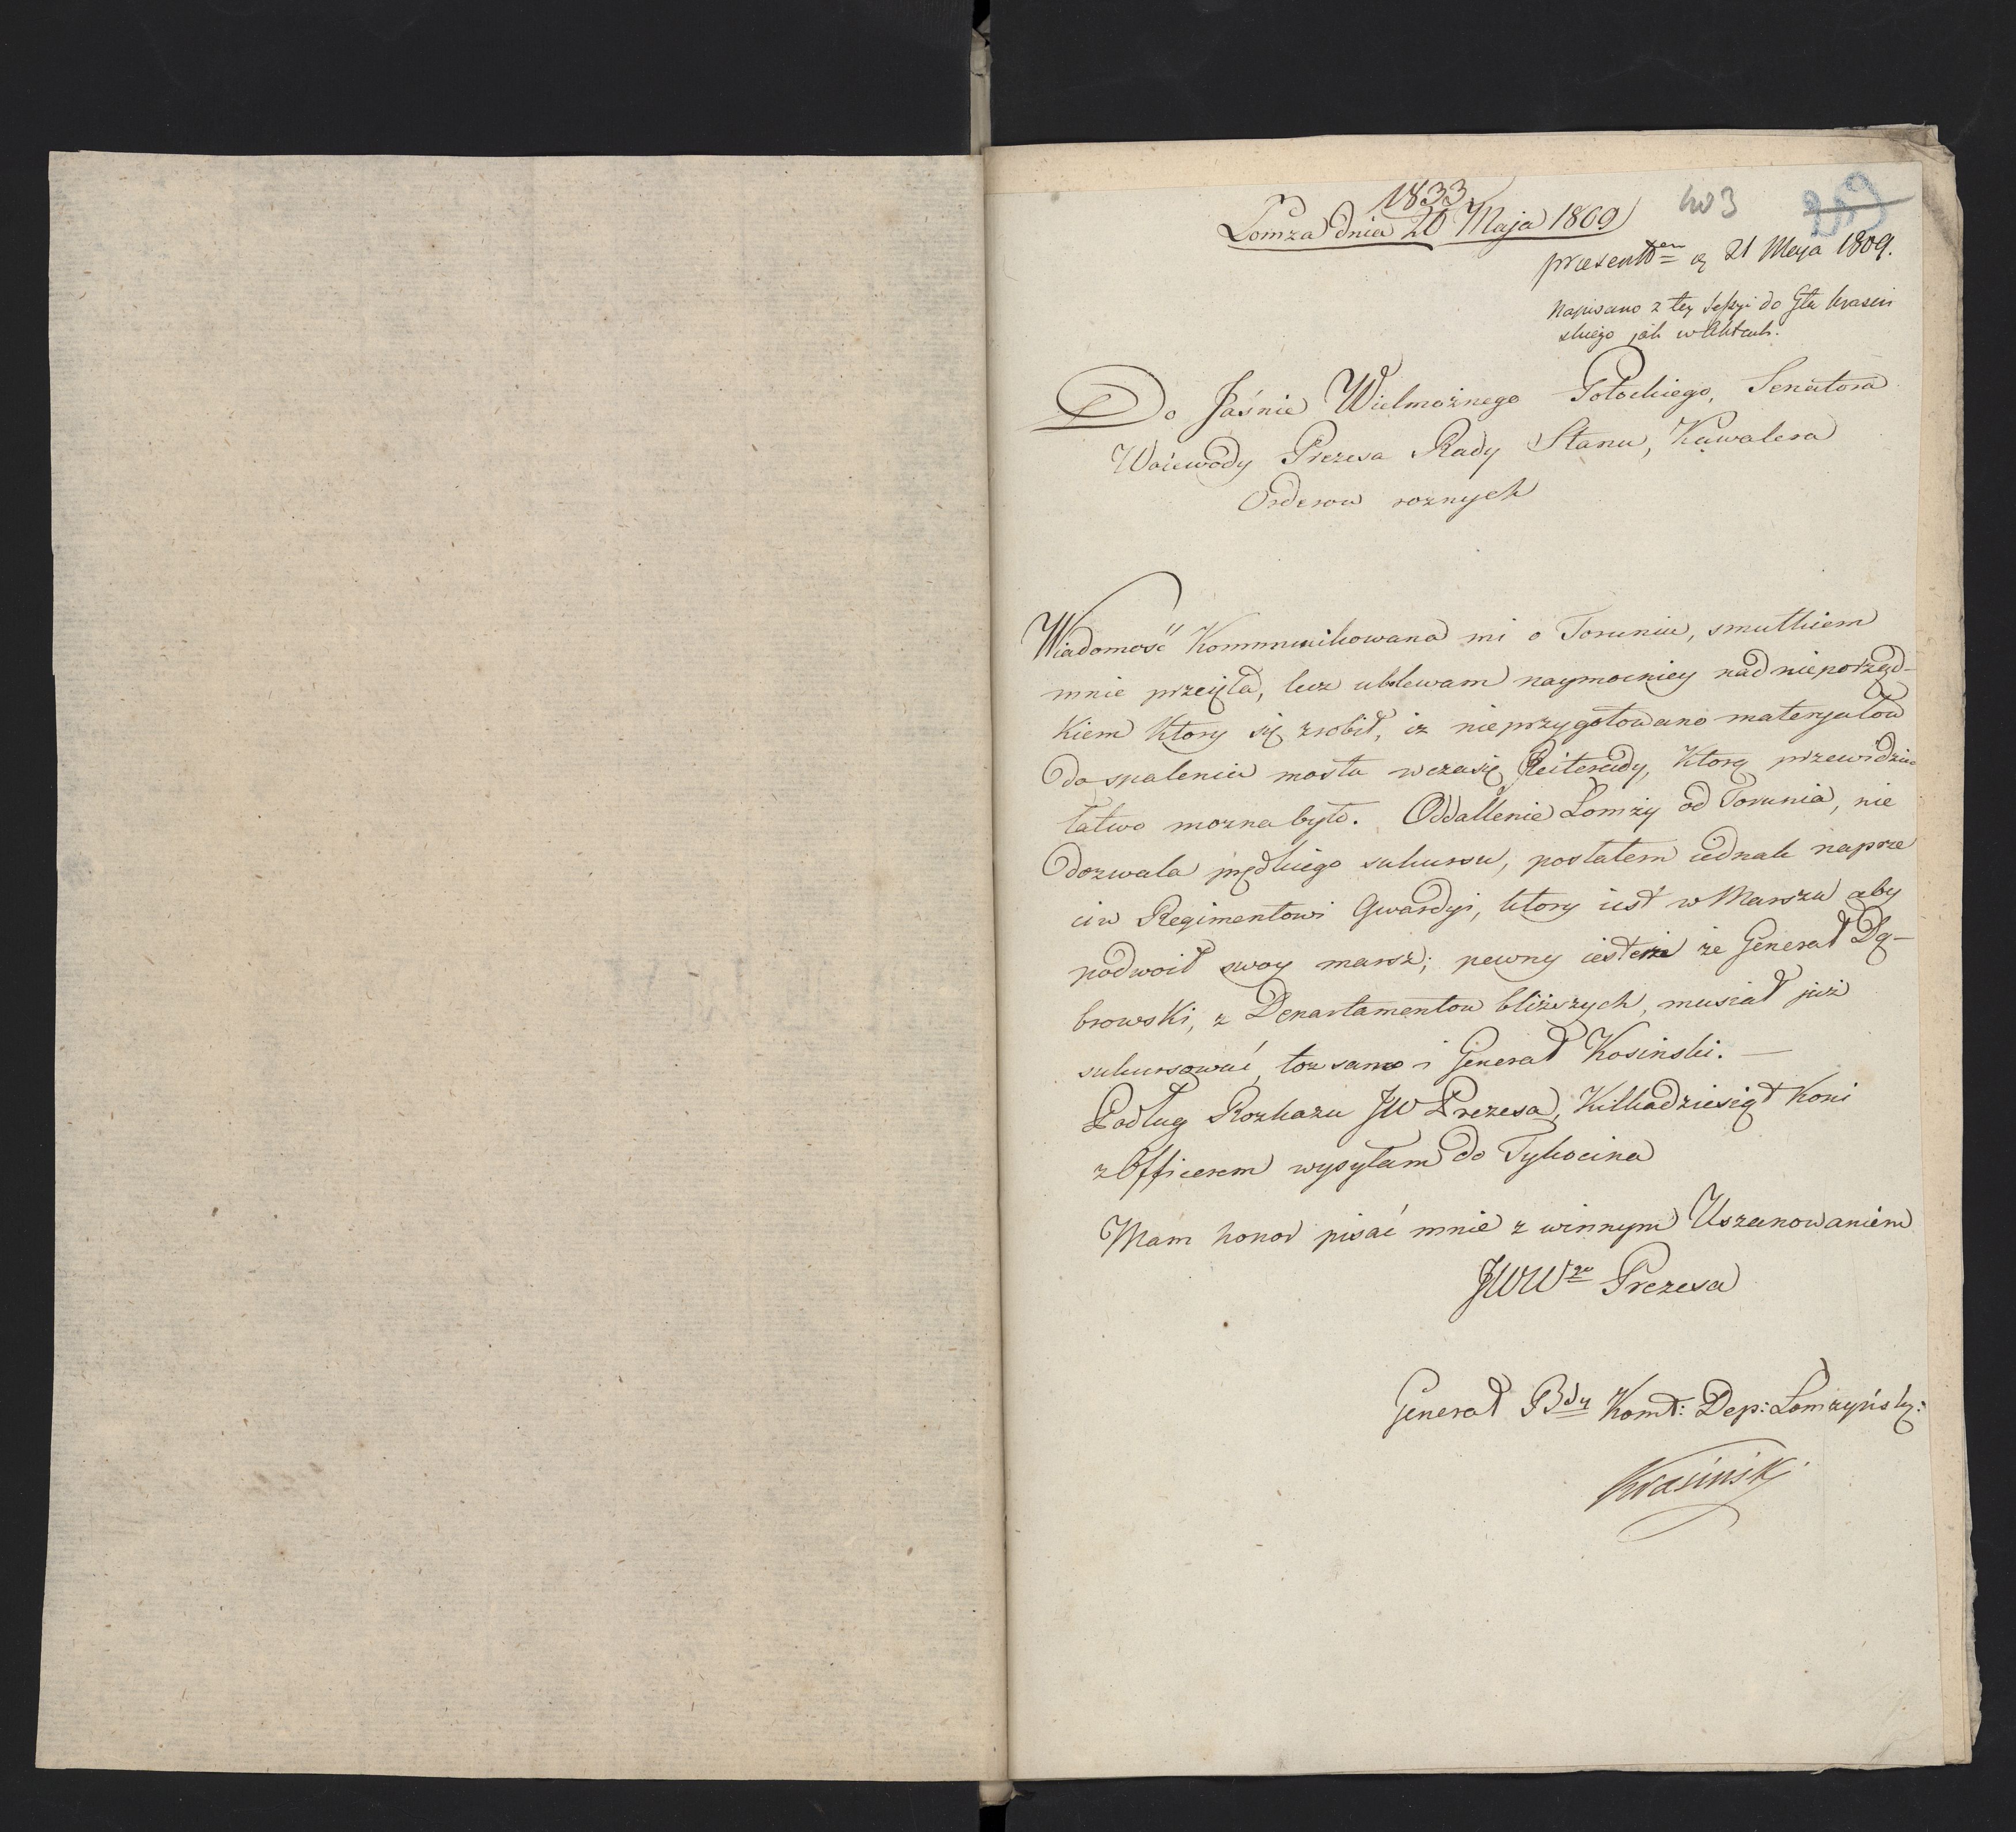 1833
403
Łomza dnia 20 Maja 1809
præsent: en 21 Maya 1809.
Napisano z tey Sessyi do Gła Krasiń
skiego jak w Aktach.
Do Jaśnie Wielmożnego Potockiego, Senatora
Woiewody Prezesa Rady Stanu, Kawalera
Orderow roznych
Wiadomość Kommunikowana mi o Toruniu, smutkiem
mnie przeięła, lecz ubolewam naymocniey nad nieporząd-
kiem ktory się zrobił, iz nieprzygotowano materyałow
do spalenia mostu w czasię Reiterady, ktorą przewidzieć
łatwo mozna było. Oddallenie Łomży od Torunia, nie
dozwala prędkiego sukursu, posłałem iednak naprze
ciw Regimentowi Gwardyi, ktory iest w Marszu aby
podwoił swoy marsz; pewny iestem że Generał Dą-
browski, z Departamentow bliższych, musiał już
sukursować, toz samo i Generał Kosinski. —
Podług Rozkazu JW Prezesa, Kilkadziesiąt Koni
z Officerem wysyłam do Tykocina
Mam honor pisać mnie z winnym Uszanowaniem
JWW go Prezesa
Generał Bdy Komt: Dep: Łomzyńsk:
Krasiński